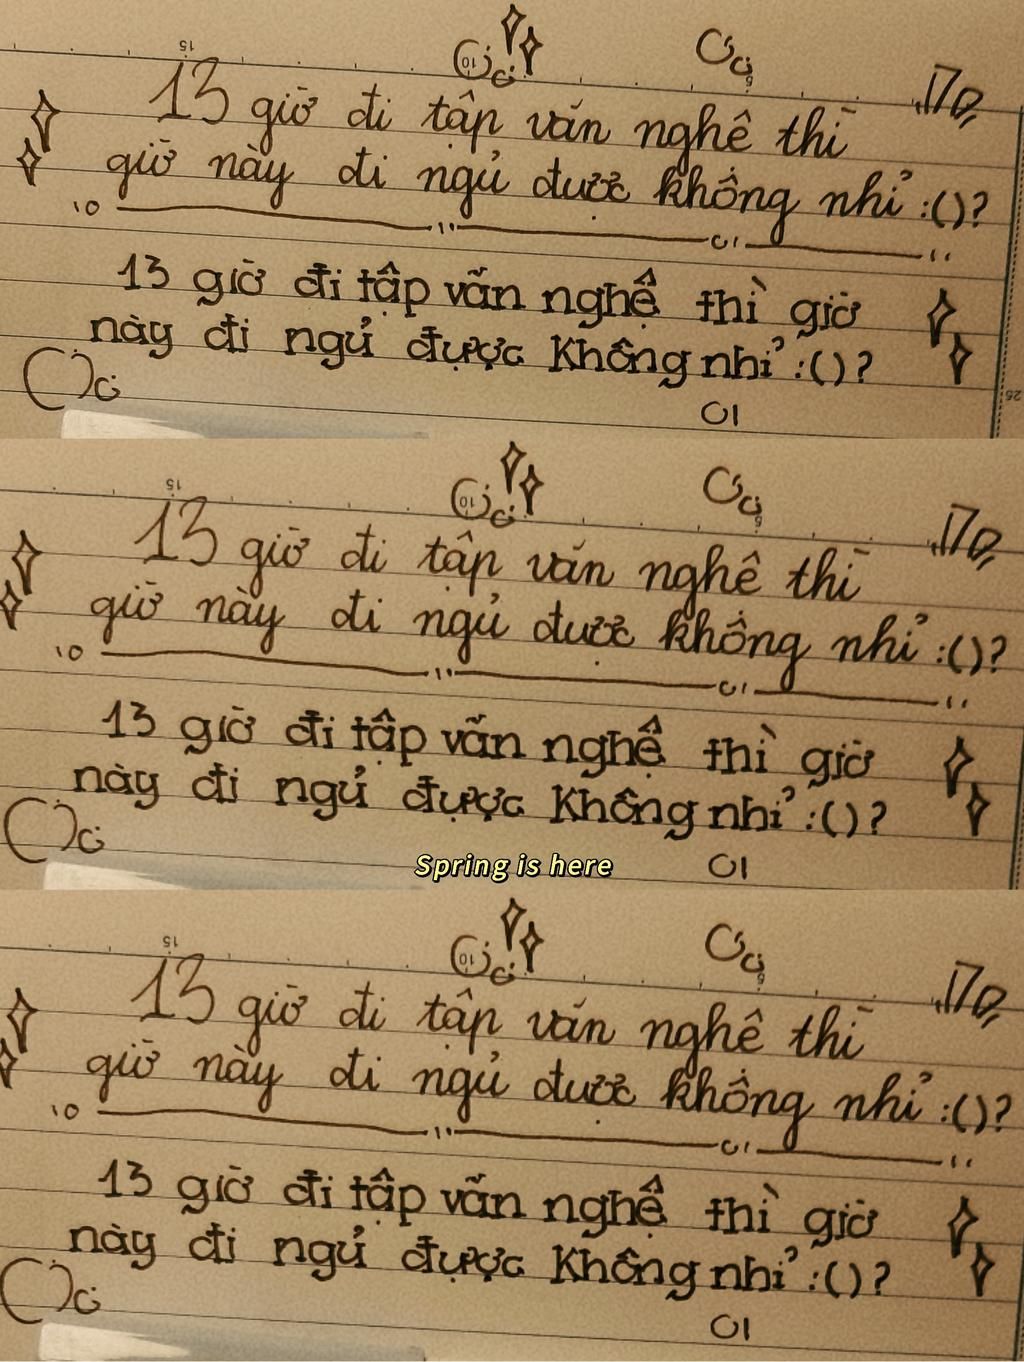 13 giờ đi tập văn nghê thì
giờ này đi ngủ được không nhỉ :()?
13 giờ đi tập văn nghệ thì giờ
này đi ngủ được Không nhỉ :()?
13 giờ đi tập văn nghê thì
giờ này đi ngủ được không nhỉ :()?
13 giờ đi tập văn nghệ thì giờ
này đi ngủ được Không nhỉ :()?
Spring is here
13 giờ đi tập văn nghê thì
giờ này đi ngủ được không nhỉ :()?
13 giờ đi tập văn nghệ thì giờ
này đi ngủ được Không nhỉ :()?